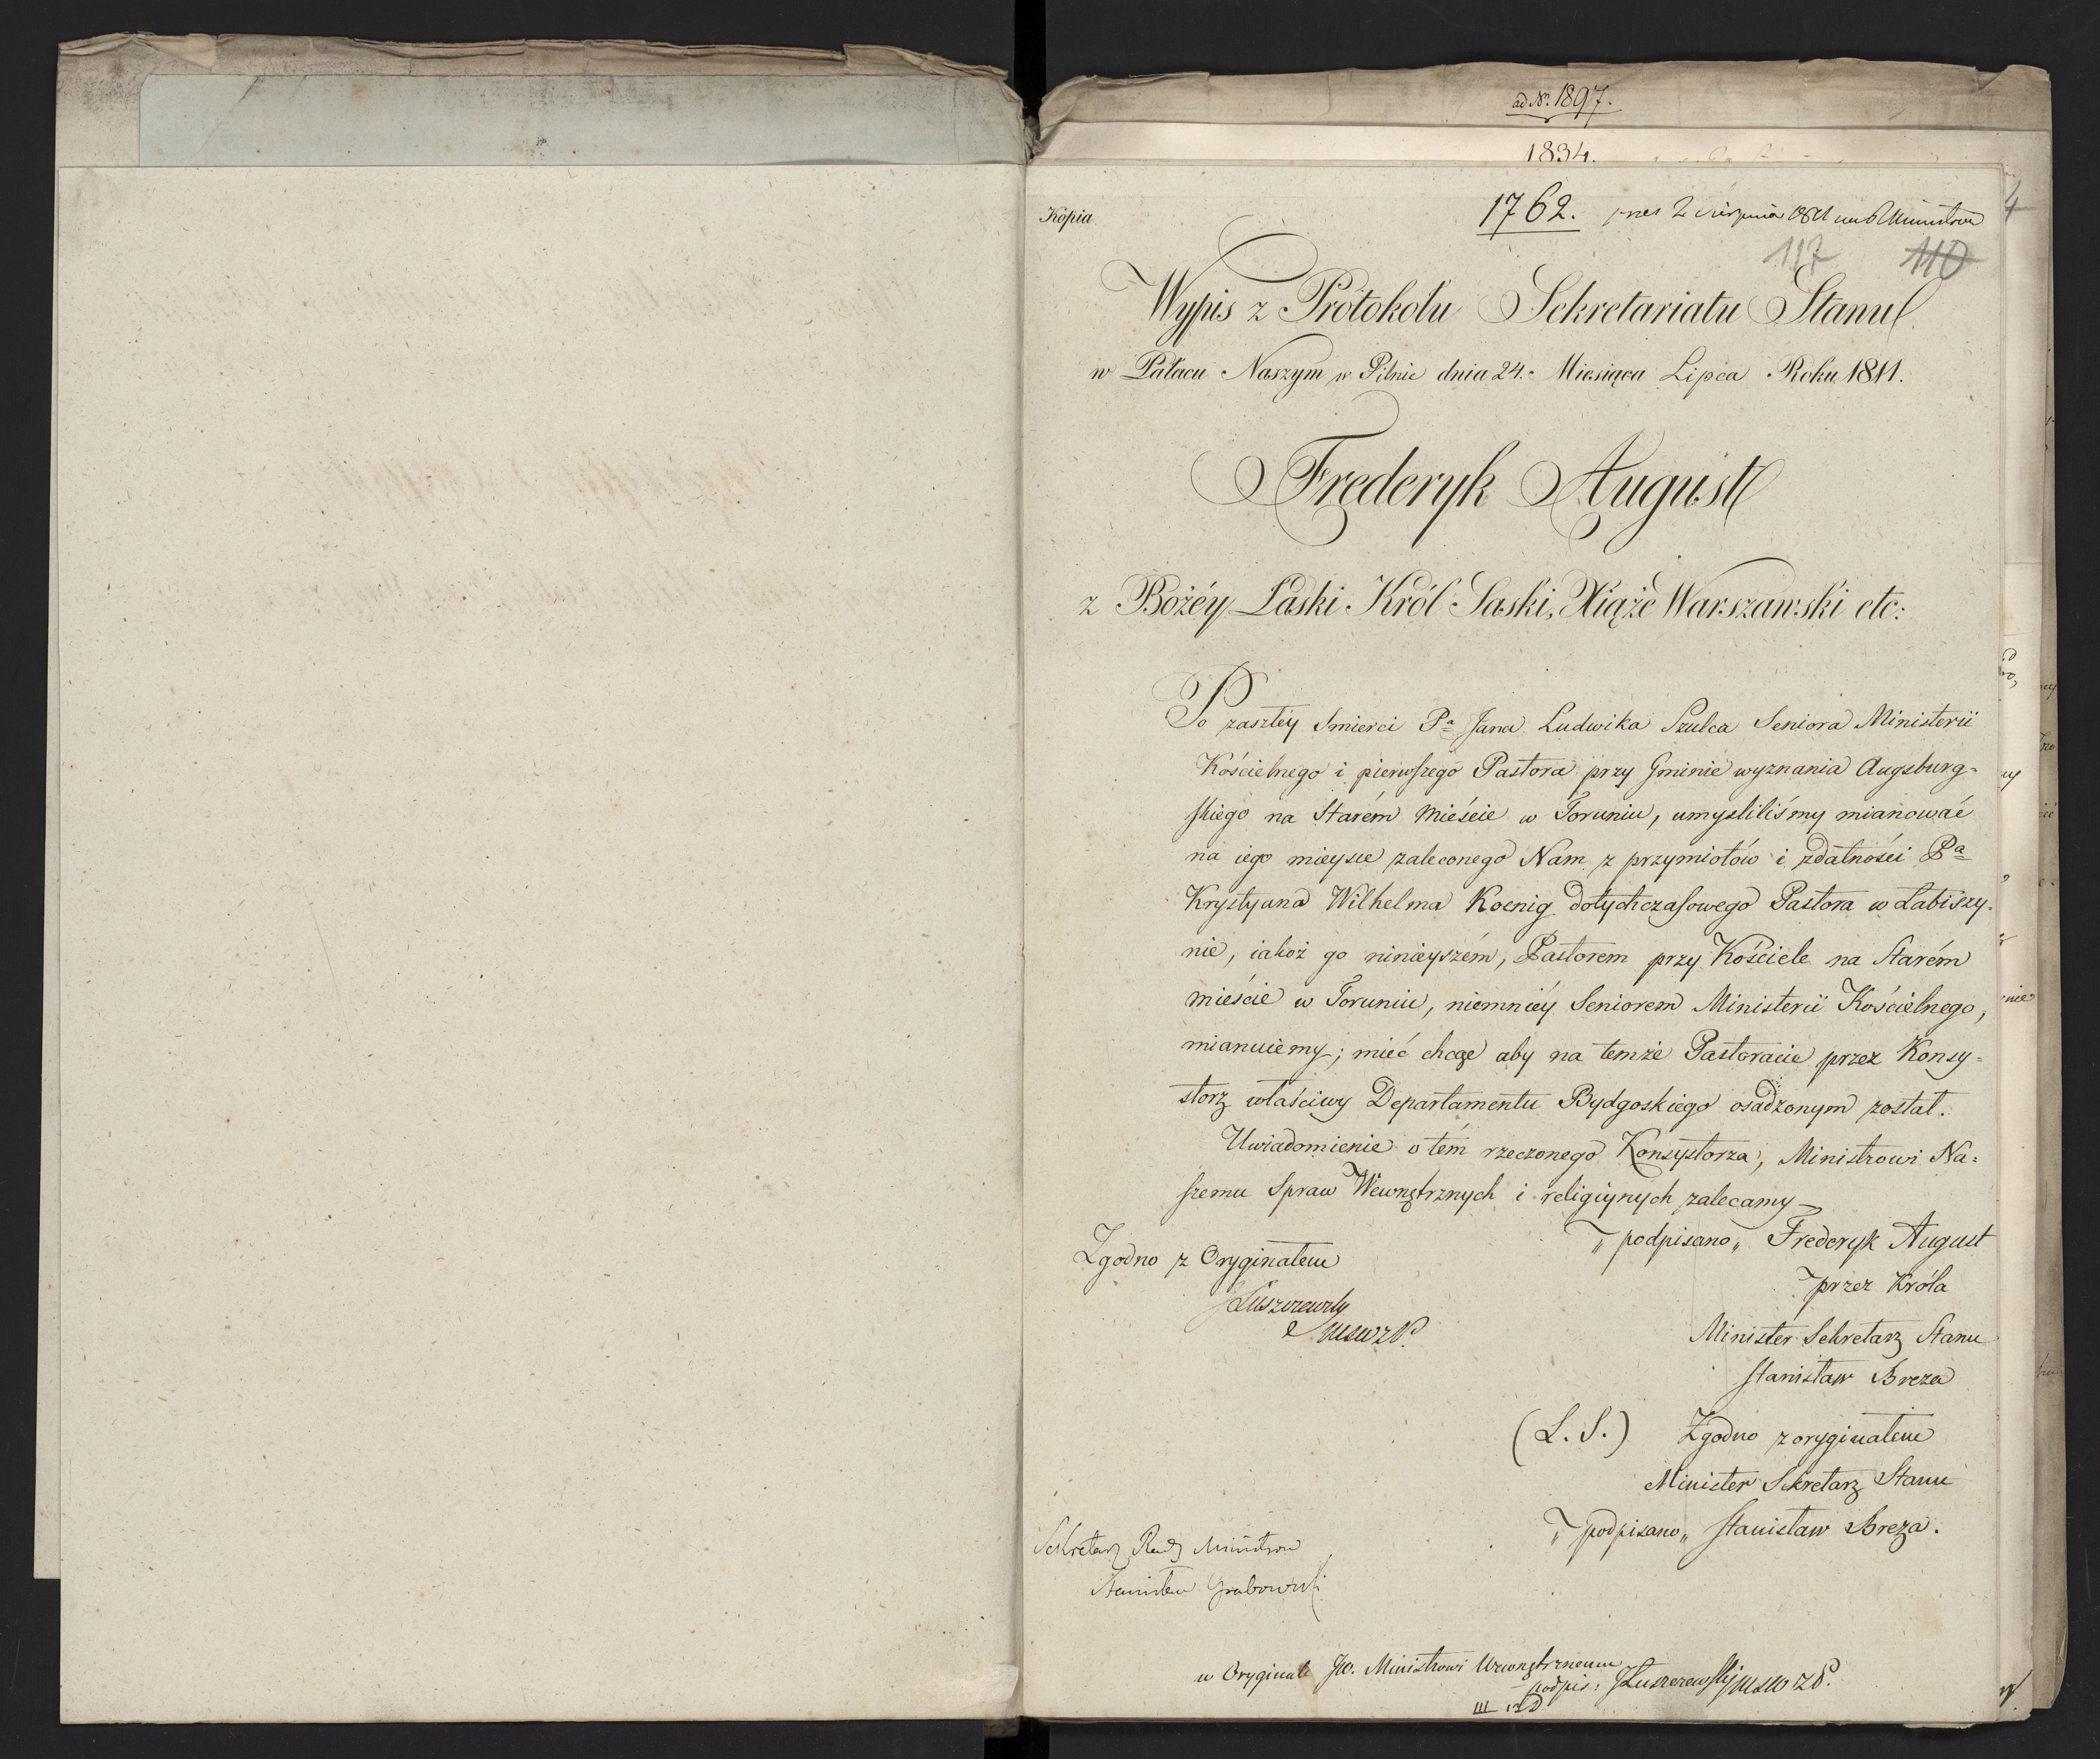 ad Nr. 1897.
1834.
Kopia
1762. pres 2 Sierpnia 1811
117 110
Wypis z Protokołu Sekretariatu Stanu
w Pałacu Naszym w Pilnic dnia 24. Miesiąca Lipca Roku 1811.
Frederyk August
z Bożéy Łaski Król Saski, Xiąże Warszawski etc:
Po zaszłéy Smierci Pa Jana Ludwika Szulca Seniora Ministerii
Kościelnego i pierwszego Pastora przy Gminie wyznania Augsburg-
skiego na Starém Mieście w Toruniu, umyśliliśmy mianować
na iego mieysce zaleconego Nam z przymiotów i zdatności Pa
Krystyana Wilhelma Koenig dotychczasowego Pastora w Łabiszy-
nie, iakoż go ninieyszém, Pastorem przy Kościele na Starém
mieście w Toruniu, niemniéy Seniorem Ministerii Kościelnego,
mianuiemy; mieć chcąc aby na temże Pastoracie przez Konsy-
storz właściwy Departamentu Bydgoskiego osadzonym został.
Uwiadomienie o tém rzeczonego Konsystorza, Ministrowi Na-
szemu Spraw Wewnętrznych i religiynych zalecamy
„podpisano„ Frederyk August
Zgodno z Oryginałem
przez Króla
Łuszczewski
MSWzR.
Minister Sekretarz Stanu
Stanisław Breza
(L. S.) Zgodno z oryginałem
Minister Sekretarz Stanu
„podpisano„ Stanisław Breza.
Sekretarz Rady Ministrow
Stanisław Grabowski
w Oryginale JW. Ministrowi Wewnętrznemu
podpis: JŁuszczewski MSWzR.